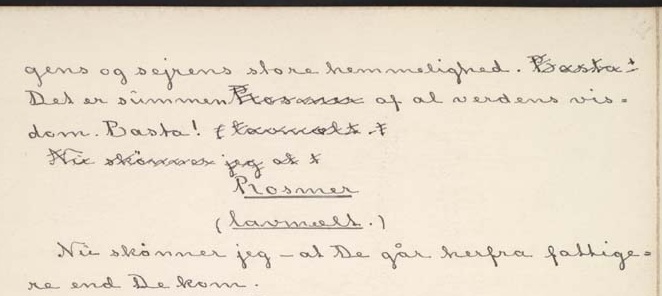 gens og sejrens store hemmelighed. Basta!
Det er summen Rosmer af al verdens vis=
dom. Basta! (lavmælt.)
Nu skönner jeg at
Rosmer
(lavmælt.)
Nu skönner jeg – at De går herfra fattige=
re end De kom.